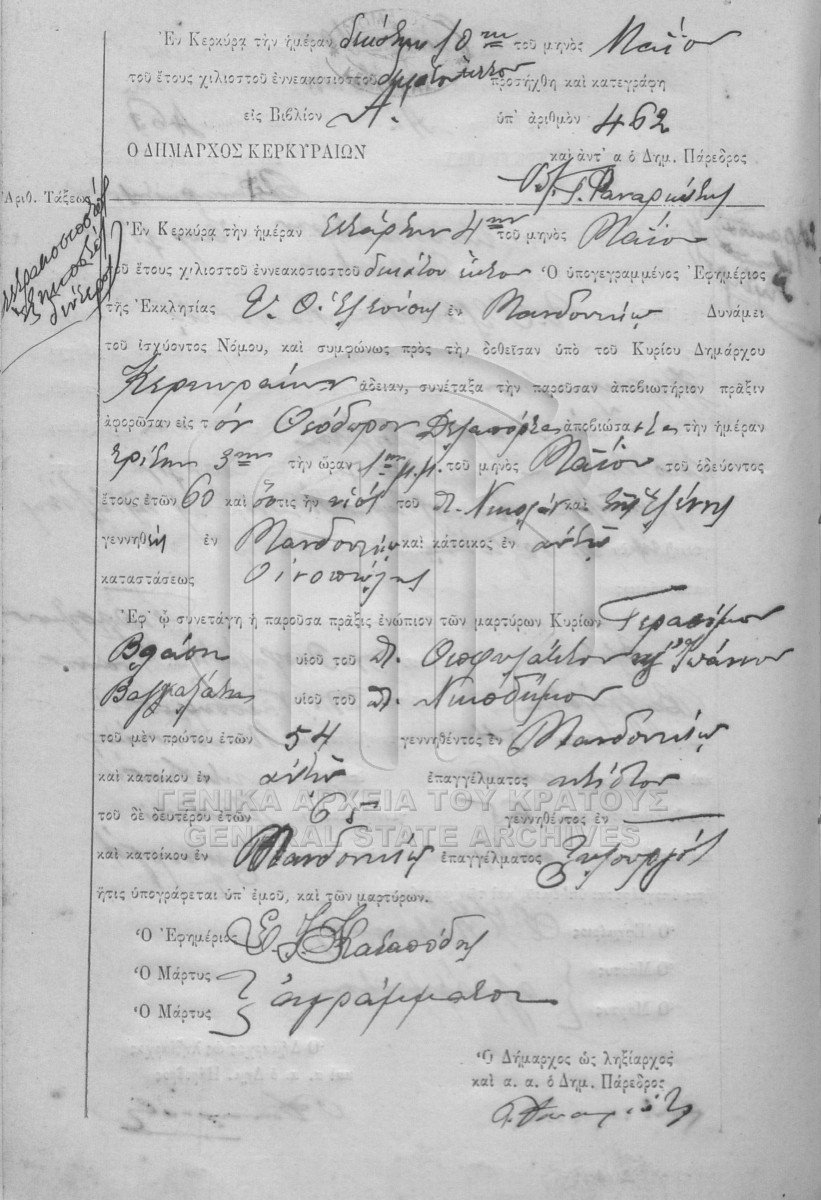 Ἐν Κερκύρᾳ τὴν ἡμέραν δεκάτην 10ην τοῦ μηνὸς Μαΐου
τοῦ ἔτους χιλιοστοῦ ἐννεακοσιοστοῦ δεκάτου ἕκτου προσήχθη καὶ κατεγράφη
εἰς Βιβλίον Α. ὑπ' ἀριθμὸν 462
Ο ΔΗΜΑΡΧΟΣ ΚΕΡΚΥΡΑΙΩΝ καὶ ἀντ' α ὁ Δημ. Πάρεδρος
Ἀριθ. Τάξεως 21
τετρακοσιοστὸν
ἑξηκοστὸν
δεύτερον
Ἐν Κερκύρᾳ τὴν ἡμέραν τετάρτην 4ην τοῦ μηνὸς Μαΐου
τοῦ ἔτους χιλιοστοῦ ἐννεακοσιοστοῦ δεκάτου ἕκτου Ὁ ὑπογεγραμμένος Ἐφημέριος
τῆς Ἐκκλησίας Υ. Θ. Ἐλεούσης ἐν Μανδουκίῳ Δυνάμει
τοῦ ἰσχύοντος Νόμου, καὶ συμφώνως πρὸς τὴν δοθεῖσαν ὑπὸ τοῦ Κυρίου Δημάρχου
Κερκυραίων ἄδειαν, συνέταξα τὴν παροῦσαν ἀποβιωτήριον πρᾶξιν
ἀφορῶσαν εἰς τὸν Θεόδωρον Δελαπόρτα ἀποβιώσαντα τὴν ἡμέραν
τρίτην 3ην τὴν ὥραν 1ην μ.μ. τοῦ μηνὸς Μαΐου τοῦ ὁδεύοντος
ἔτους ἐτῶν 60 καὶ ὅστις ἦν υἱὸς τοῦ π. Νικολάου καὶ τῆς Ἑλένης
γεννηθεὶς ἐν Μανδουκίῳ καὶ κάτοικος ἐν αὐτῷ
καταστάσεως Οἰνοπώλης
Ἐφ' ᾧ συνετάγη ἡ παροῦσα πρᾶξις ἐνώπιον τῶν μαρτύρων Κυρίων Γερασίμου
Βλάση υἱοῦ τοῦ π. Θεοφυλάκτου καὶ Ἰωάννου
υἱοῦ τοῦ π. Νικοδήμου
τοῦ μὲν πρώτου ἐτῶν 54 γεννηθέντος ἐν Μανδουκίῳ
καὶ κατοίκου ἐν αὐτῷ ἐπαγγέλματος κτίστου
τοῦ δὲ δευτέρου ἐτῶν 65 γεννηθέντος ἐν —
καὶ κατοίκου ἐν Μανδουκίῳ ἐπαγγέλματος Ξυλουργός
ἥτις ὑπογράφεται ὑπ' ἐμοῦ, καὶ τῶν μαρτύρων.
Ὁ Ἐφημέριος
Ὁ Μάρτυς
Ὁ Μάρτυς ἀγράμματοι
Ὁ Δήμαρχος ὡς ληξίαρχος
καὶ α. α. ὁ Δημ. Πάρεδρος
ΓΕΝΙΚΑ ΑΡΧΕΙΑ ΤΟΥ ΚΡΑΤΟΥΣ
GENERAL STATE ARCHIVES